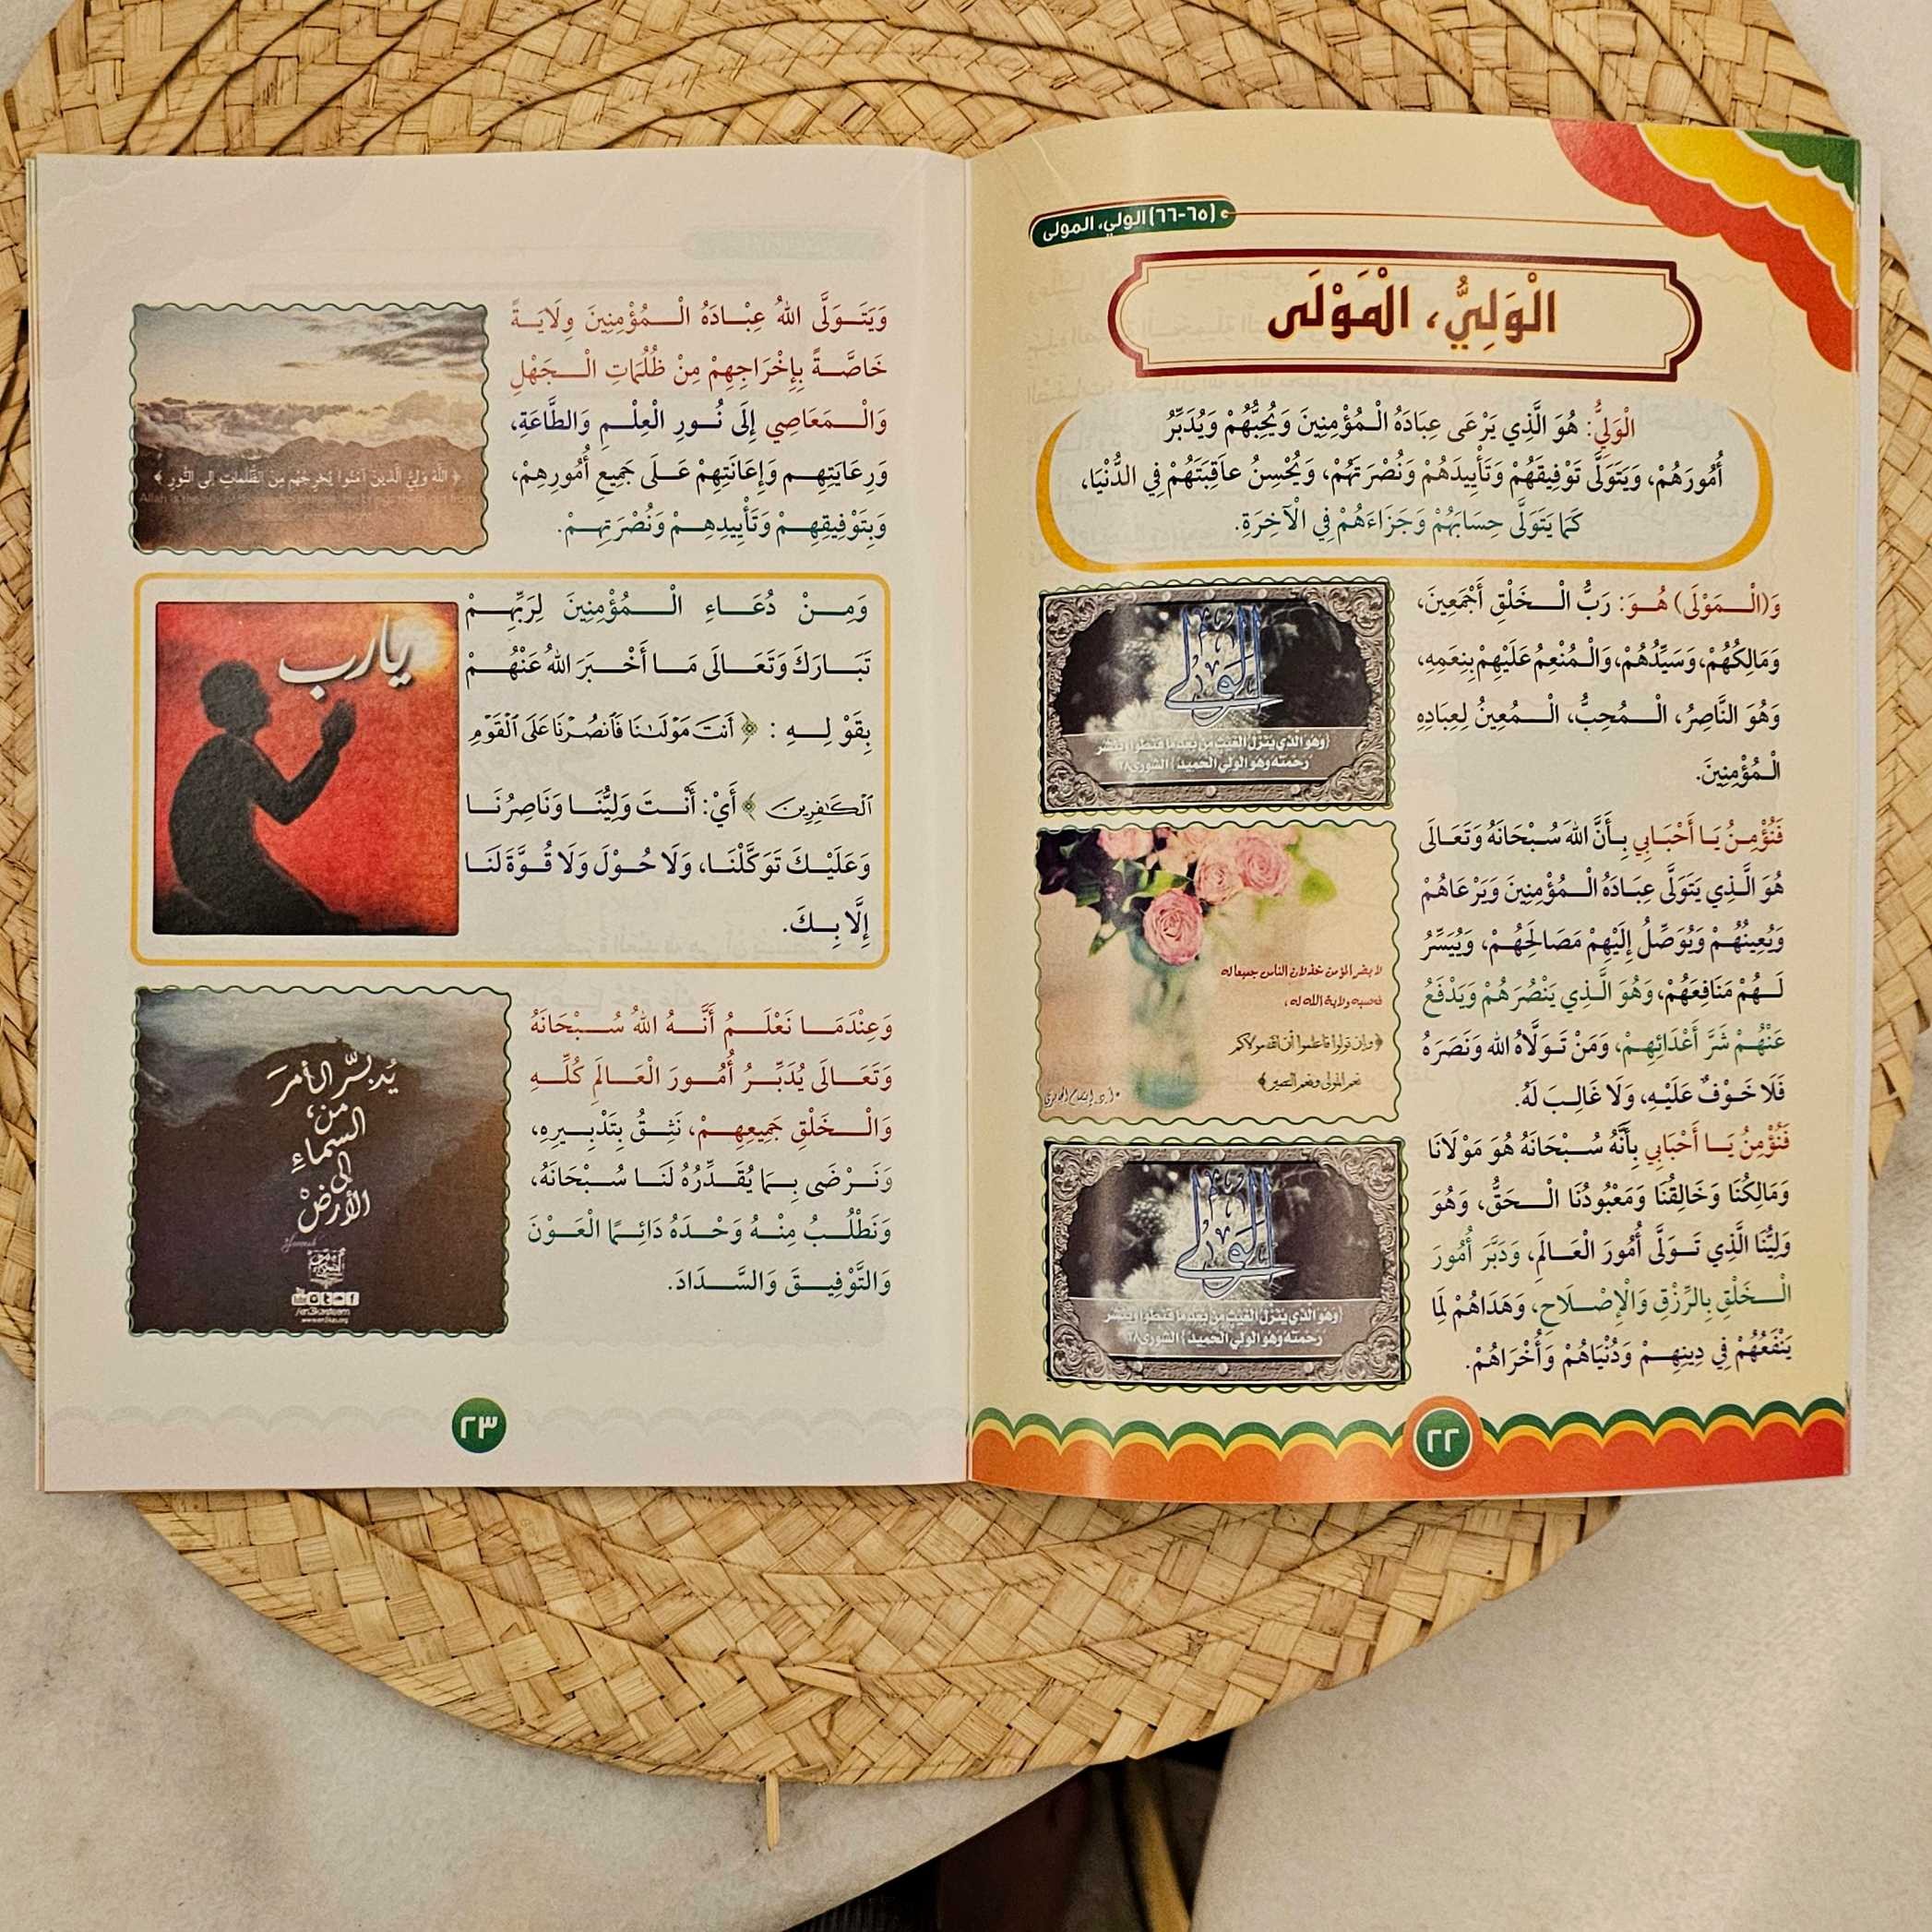 (٦٥-٦٦) الولي، المولى
الْوَلِيُّ، الْمَوْلَى
الْوَلِيُّ: هُوَ الَّذِي يَرْعَى عِبَادَهُ الْمُؤْمِنِينَ وَيُحِبُّهُمْ وَيُدَبِّرُ
أُمُورَهُمْ، وَيَتَوَلَّى تَوْفِيقَهُمْ وَتَأْيِيدَهُمْ وَنُصْرَتَهُمْ، وَيُحْسِنُ عَاقِبَتَهُمْ فِي الدُّنْيَا،
كَمَا يَتَوَلَّى حِسَابَهُمْ وَجَزَاءَهُمْ فِي الْآخِرَةِ.
وَ(الْمَوْلَى) هُوَ: رَبُّ الْخَلْقِ أَجْمَعِينَ،
وَمَالِكُهُمْ، وَسَيِّدُهُمْ، وَالْمُنْعِمُ عَلَيْهِمْ بِنِعَمِهِ،
وَهُوَ النَّاصِرُ، الْمُحِبُّ، الْمُعِينُ لِعِبَادِهِ
الْمُؤْمِنِينَ.
الولي
(وهو الذي ينزل الغيث من بعد ما قنطوا وينشر
رحمته وهو الولي الحميد) الشورى٢٨
فَنُؤْمِنُ يَا أَحْبَابِي بِأَنَّ اللهَ سُبْحَانَهُ وَتَعَالَى
هُوَ الَّذِي يَتَوَلَّى عِبَادَهُ الْمُؤْمِنِينَ وَيَرْعَاهُمْ
وَيُعِينُهُمْ وَيُوَصِّلُ إِلَيْهِمْ مَصَالِحَهُمْ، وَيُيَسِّرُ
لَهُمْ مَنَافِعَهُمْ، وَهُوَ الَّذِي يَنْصُرَهُمْ وَيَدْفَعُ
عَنْهُمْ شَرَّ أَعْدَائِهِمْ، وَمَنْ تَوَلَّاهُ الله وَنَصَرَهُ
فَلَا خَوْفٌ عَلَيْهِ، وَلَا غَالِبَ لَهُ.
لا يضر المؤمن خذلان الناس جميعا له
فحسبه ولاية الله له،
﴿وإن تولوا فاعلموا أن الله مولاكم
نعم المولى ونعم النصير﴾
فَنُؤْمِنُ يَا أَحْبَابِي بِأَنَّهُ سُبْحَانَهُ هُوَ مَوْلَانَا
وَمَالِكُنَا وَخَالِقُنَا وَمَعْبُودُنَا الْحَقُّ، وَهُوَ
وَلِيُّنَا الَّذِي تَوَلَّى أُمُورَ الْعَالَمِ، وَدَبَّرَ أُمُورَ
الْخَلْقِ بِالرِّزْقِ وَالْإِصْلَاحِ، وَهَدَاهُمْ لِمَا
يَنْفَعُهُمْ فِي دِينِهِمْ وَدُنْيَاهُمْ وَأُخْرَاهُمْ.
الولي
(وهو الذي ينزل الغيث من بعد ما قنطوا وينشر
رحمته وهو الولي الحميد) الشورى٢٨
٢٢
وَيَتَوَلَّى اللهُ عِبَادَهُ الْمُؤْمِنِينَ وِلَايَةً
خَاصَّةً بِإِخْرَاجِهِمْ مِنْ ظُلُمَاتِ الْجَهْلِ
وَالْمَعَاصِي إِلَى نُورِ الْعِلْمِ وَالطَّاعَةِ،
وَرِعَايَتِهِم وَإِعَانَتِهِمْ عَلَى جَمِيعِ أُمُورِهِمْ،
وَبِتَوْفِيقِهِمْ وَتَأْيِيدِهِمْ وَنُصْرَتِهِمْ.
﴿ اللَّهُ وَلِيُّ الَّذِينَ آمَنُوا يُخْرِجُهُم مِنَ الظُّلُمَاتِ إِلَى النُّورِ ﴾
وَمِنْ دُعَاءِ الْمُؤْمِنِينَ لِرَبِّهِمْ
تَبَارَكَ وَتَعَالَى مَا أَخْبَرَ اللهُ عَنْهُمْ
بِقَوْلِهِ : ﴿ أَنتَ مَوْلَىٰنَا فَٱنصُرْنَا عَلَى ٱلْقَوْمِ
ٱلْكَٰفِرِينَ ﴾ أَيْ: أَنْتَ وَلِيُّنَا وَنَاصِرُنَا
وَعَلَيْكَ تَوَكَّلْنَا، وَلَا حُوْلَ وَلَا قُوَّةَ لَنَا
إِلَّا بِكَ.
يارب
وَعِنْدَمَا نَعْلَمُ أَنَّهُ اللهُ سُبْحَانَهُ
وَتَعَالَى يُدَبِّرُ أُمُورَ الْعَالَمِ كُلِّهِ
وَالْخَلْقِ جَمِيعِهِمْ، نَثِقُ بِتَدْبِيرِهِ،
وَنَرْضَى بِمَا يُقَدِّرُهُ لَنَا سُبْحَانَهُ،
وَنَطْلُبُ مِنْهُ وَحْدَهُ دَائِمًا الْعَوْنَ
وَالتَّوْفِيقَ وَالسَّدَادَ.
يُدبِّر الأمرَ
من
السماءِ
إلى
الأرضْ
٢٣